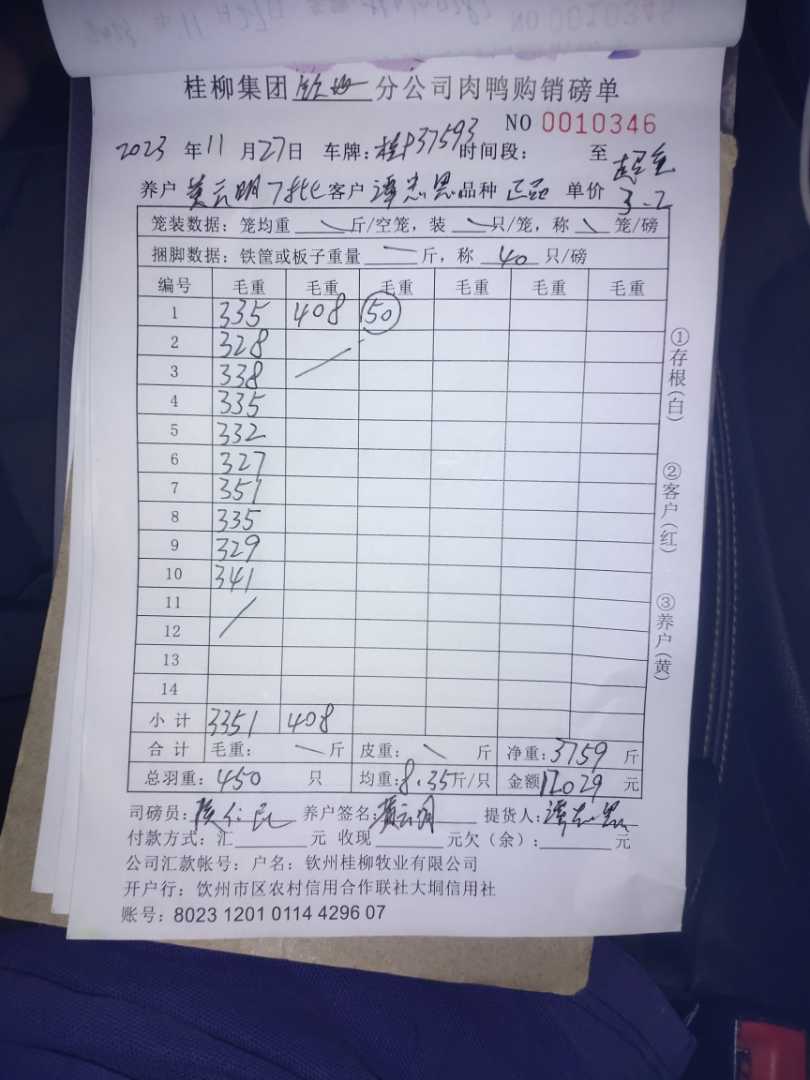 桂柳集团钦州分公司肉鸭购销磅单
NO 0010346
2023 年 11 月 27 日 车牌:桂P37593 时间段: 至
养户 黄云明7批 客户 谭志思 品种 正品 单价 3.2
笼装数据:笼均重 斤/空笼,装 只/笼,称 笼/磅
捆脚数据:铁筐或板子重量 斤,称 40 只/磅
编号 毛重 毛重 毛重 毛重 毛重 毛重
1 335 408 50
2 328
3 338
4 335
5 332
6 327
7 351
8 335
9 329
10 341
11
12
13
14
小计 3351 408
合计 毛重: 斤 皮重: 斤 净重:3759 斤
总羽重:450 只 均重:8.35斤/只 金额12029 元
司磅员: 养户签名:黄云明 提货人:谭志思
付款方式:汇 元 收现 元欠(余): 元
公司汇款帐号:户名:钦州桂柳牧业有限公司
开户行:饮州市区农村信用合作联社大垌信用社
账号:8023 1201 0114 4296 07
①存根(白)
②客户(红)
③养户(黄)